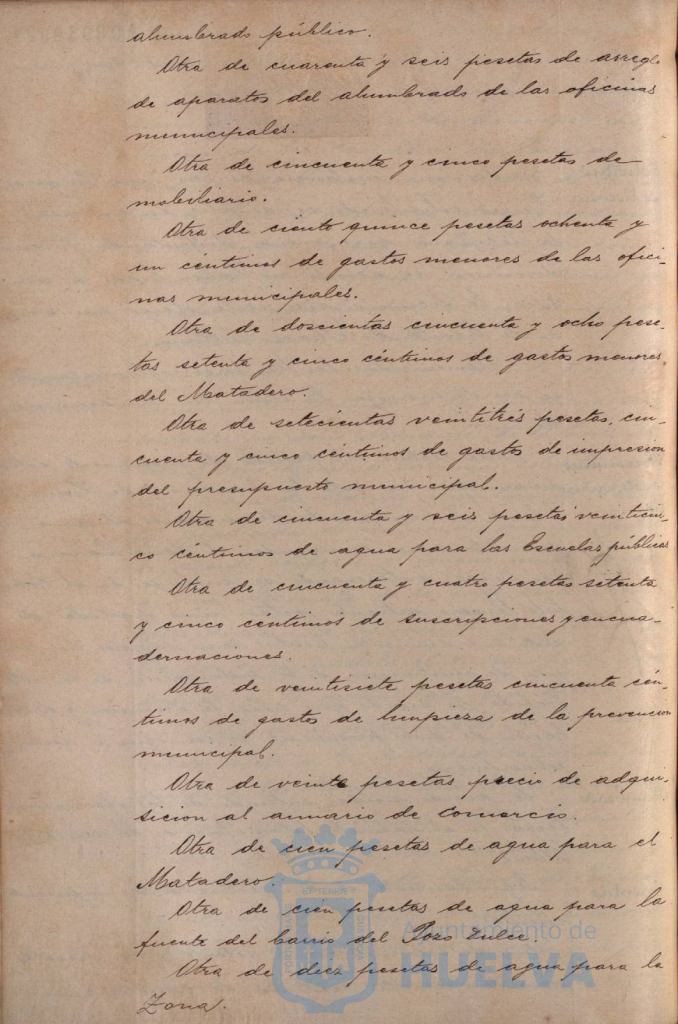 alumbrado público.
Otra de cuarenta y seis pesetas de arreglo
de aparatos del alumbrado de las oficinas
municipales.
Otra de cincuenta y cinco pesetas de
mobiliario.
Otra de ciento quince pesetas ochenta y
un céntimos de gastos menores de las ofici-
nas municipales.
Otra de doscientas cincuenta y ocho pese-
tas setenta y cinco céntimos de gastos menores
del Matadero.
Otra de setecientas veintitrés pesetas, cin-
cuenta y cinco céntimos de gastos de impresion
del presupuesto municipal.
Otra de cincuenta y seis pesetas veinticin-
co céntimos de agua para las Escuelas públicas
Otra de cincuenta y cuatro pesetas setenta
y cinco céntimos de suscripciones y encua-
dernaciones.
Otra de veintisiete pesetas cincuenta cén-
timos de gastos de limpieza de la prevencion
municipal.
Otra de veinte pesetas precio de adqui-
sicion al anuario de Comercio.
Otra de cien pesetas de agua para el
Matadero.
Otra de cien pesetas de agua para la
fuente del barrio del Pozo Dulce.
Otra de diez pesetas de agua para la
Zona.
Ayuntamiento de
HUELVA